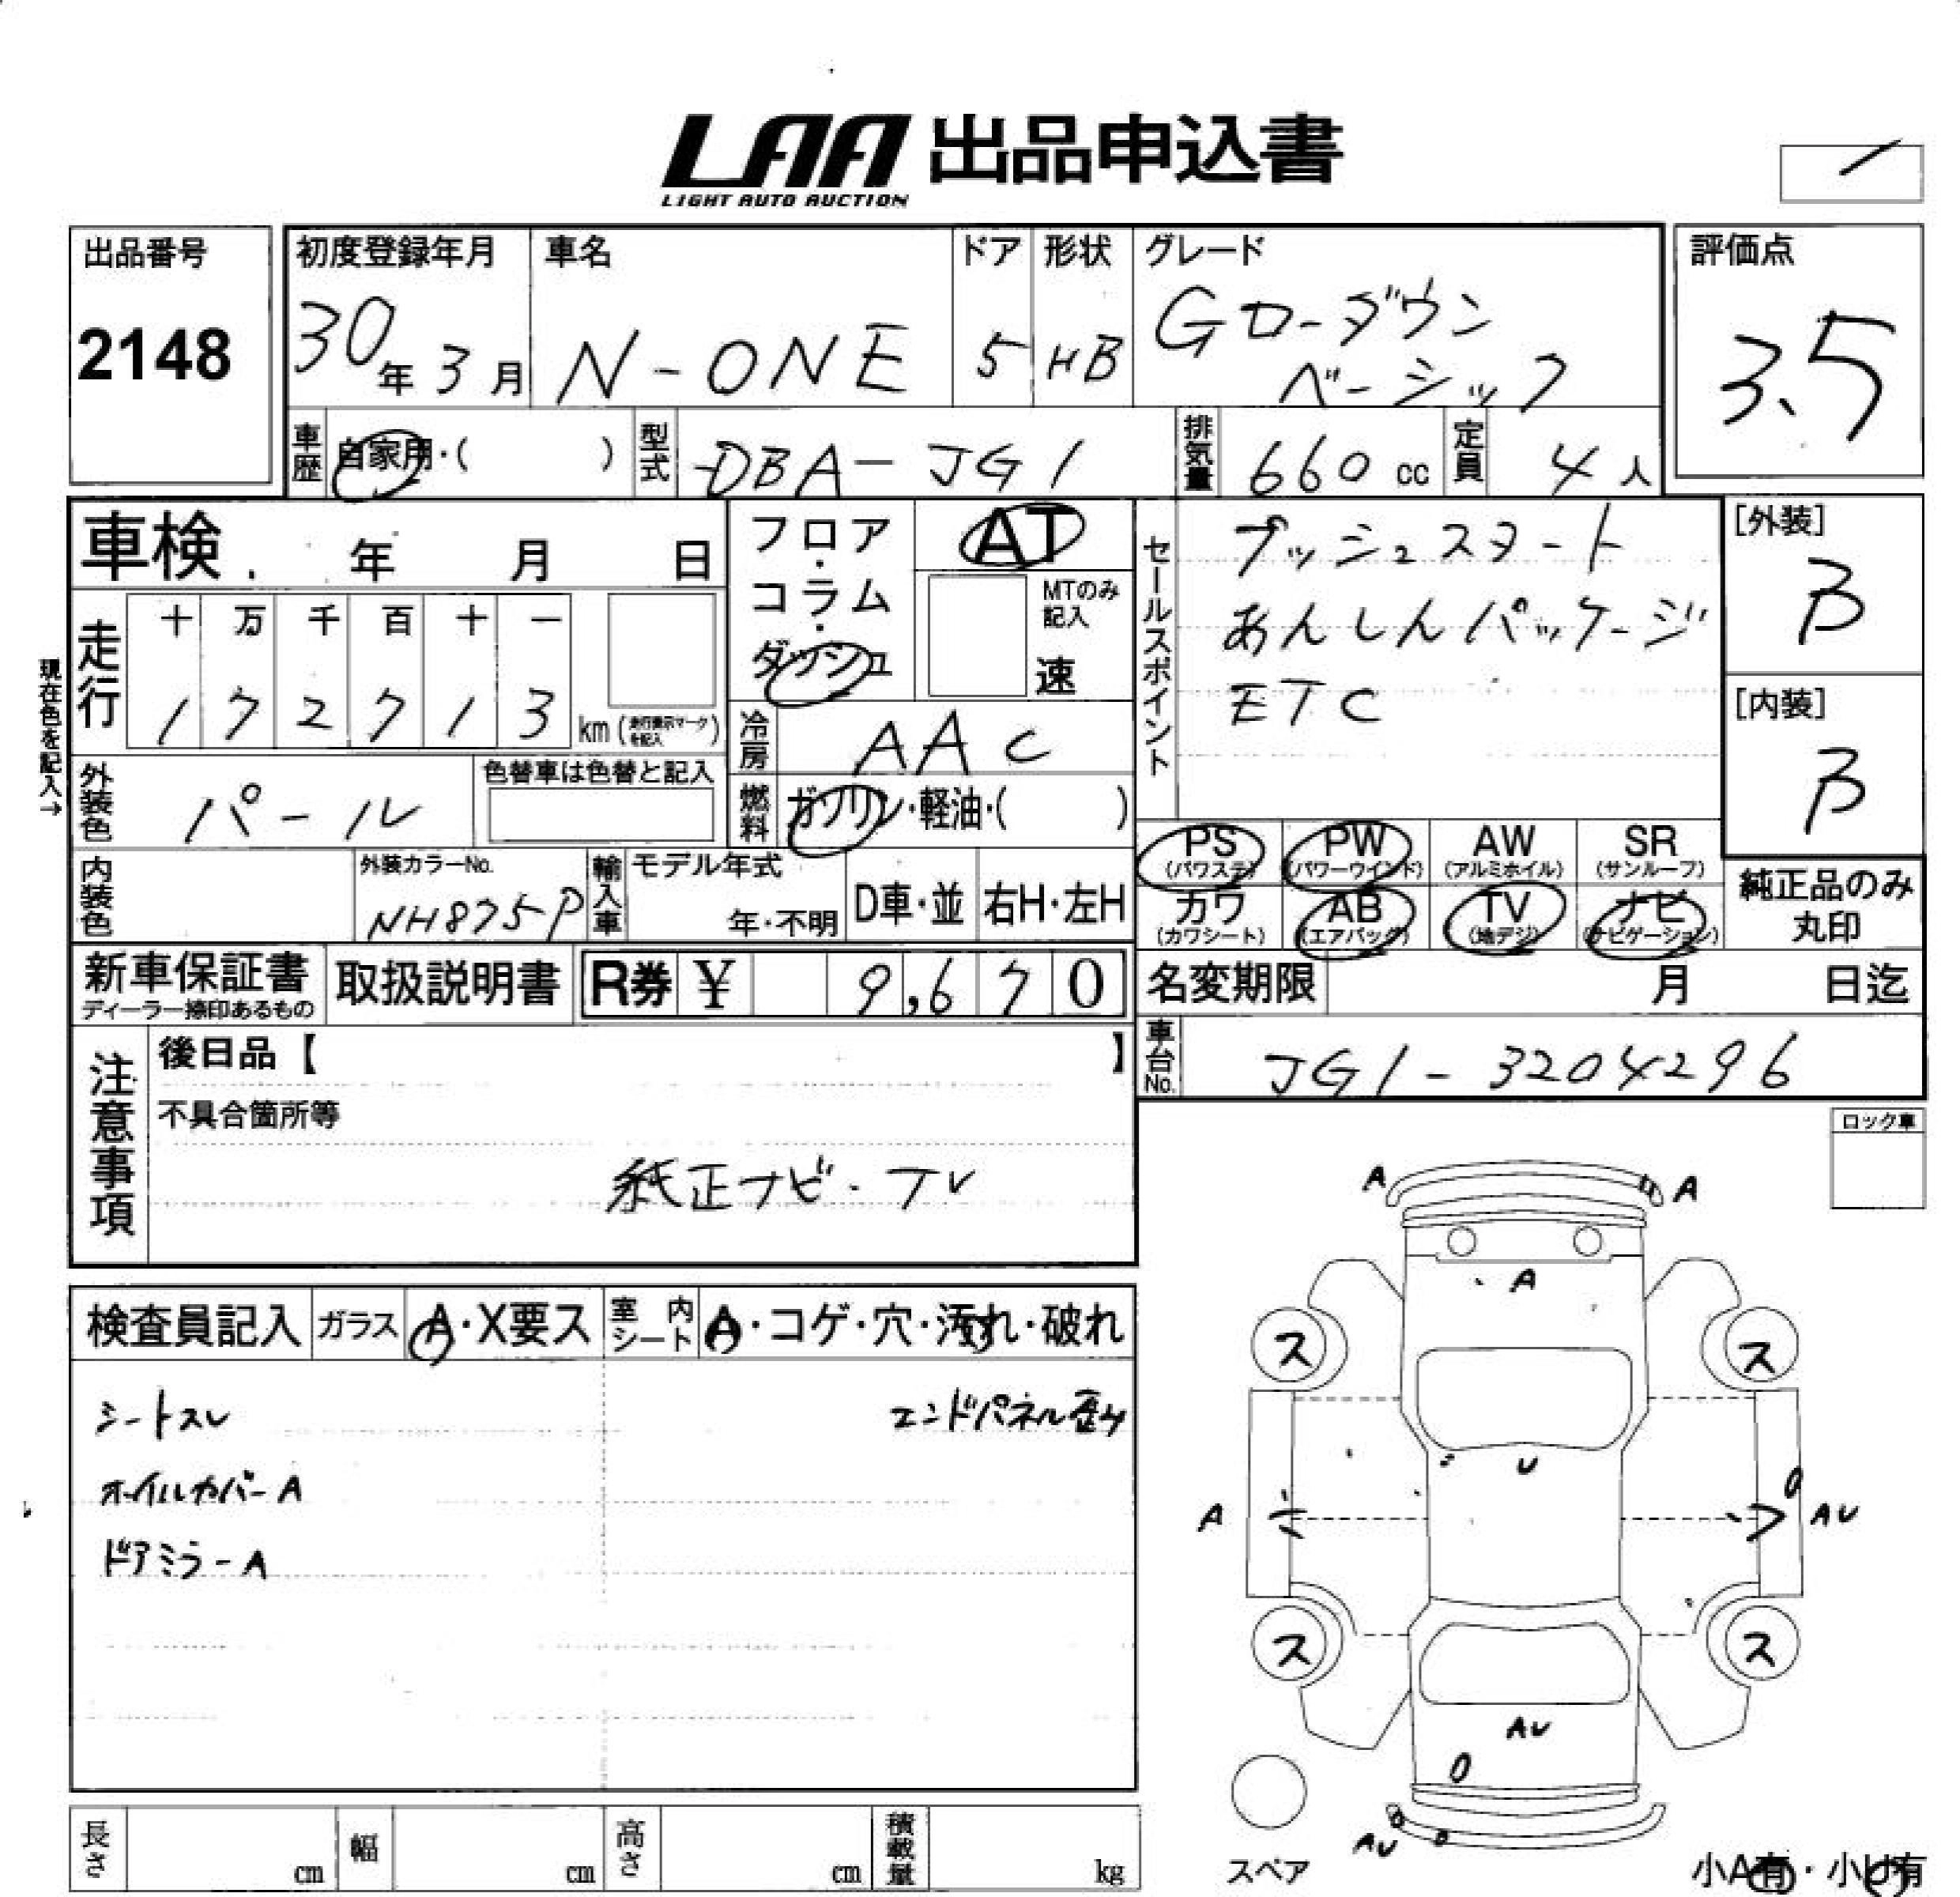 LAA 出品申込書
LIGHT AUTO AUCTION
出品番号
2148
初度登録年月
30年3月
車名
N-ONE
ドア
5
形状
HB
グレード
Gローダウン
ベーシック
評価点
3.5
車歴
自家用・( )
型式
DBA-JG1
排気量
660 cc
定員
4人
車検 年 月 日
フロア・コラム・ダッシュ
AT
MTのみ
記入
速
セールスポイント
プッシュスタート
あんしんパッケージ
ETC
[外装]
B
[内装]
B
現在色を記入→
走行
十 万 千 百 十 一
1 7 2 7 1 3 km (走行表示マークを記入)
冷房
AAC
外装色
パール
色替車は色替と記入
燃料
ガソリン・軽油・( )
PS (パワステ)
PW (パワーウインド)
AW (アルミホイル)
SR (サンルーフ)
カワ (カワシート)
AB (エアバッグ)
TV (地デジ)
ナビ (ナビゲーション)
純正品のみ
丸印
内装色
外装カラーNo.
NH875P
輸入車
モデル年式
年・不明
D車・並
右H・左H
新車保証書
ディーラー捺印あるもの
取扱説明書
R券 ¥ 9,670
名変期限 月 日迄
車台No.
JG1-3204296
注意事項
後日品【 】
不具合箇所等
純正ナビ・TV
ロック車
検査員記入
ガラス
A・X要ス
室内シート
A・コゲ・穴・汚れ・破れ
シートスレ
エンドパネル歪み
ホイルカバーA
ドアミラーA
A A
A
ス ス
U
A AU
ス ス
AU
AU
スペア
小A有・小U有
長さ cm
幅 cm
高さ cm
積載量 kg